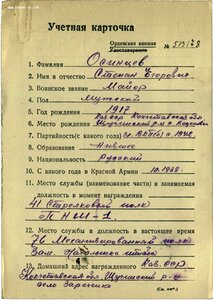 Учетная карточка
Орденская книжка
№ 573178
1. Фамилия Осинцев
2. Имя и отчество Степан Егорович
3. Воинское звание Майор
4. Пол Мужской
5. Год рождения 1917
6. Место рождения
7. Партийность (с какого года) ВКП(б) с 1942.
8. Образование Низшее
9. Национальность Русский
10. С какого года в Красной Армии 10.1938.
11. Место службы (наименование части) и занимаемая
должность в момент награждения
41 Стрелковый полк
ПНШ-1
12. Место службы и должность в настоящее время
76 Механизированный полк
Зам. Начальника штаба
13. Домашний адрес награжденного Каз. ССР